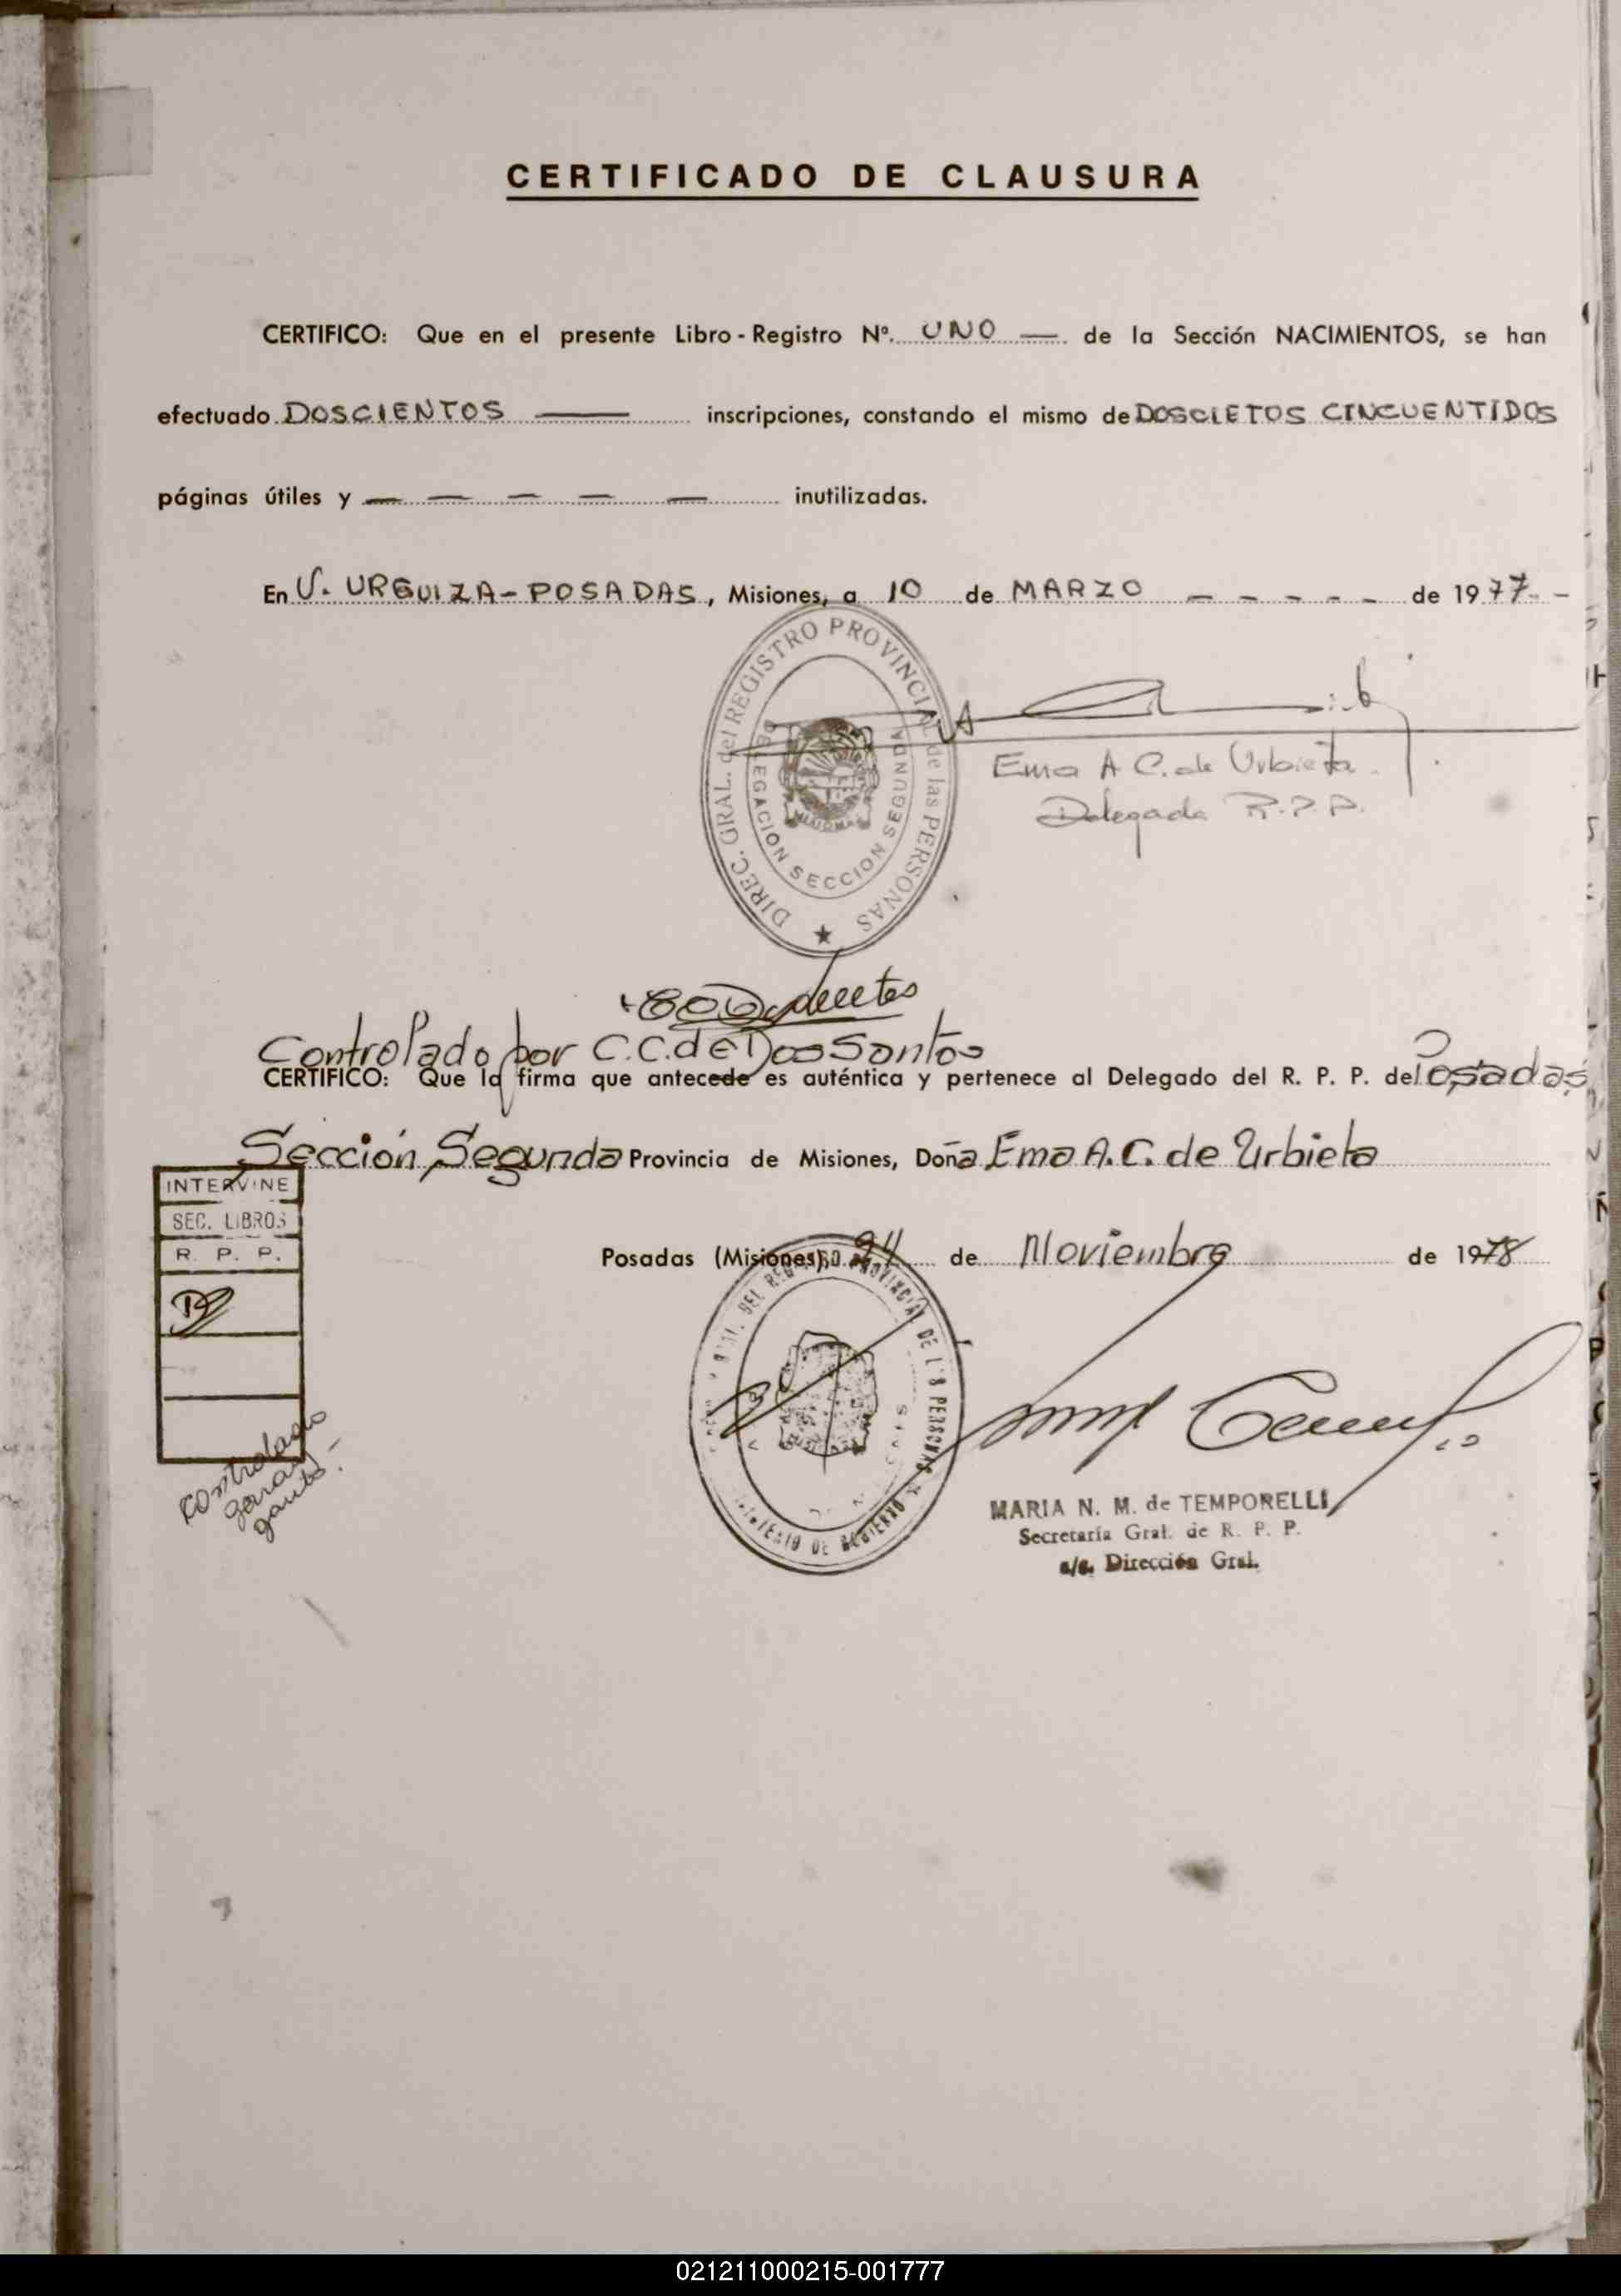 CERTIFICADO DE CLAUSURA
CERTIFICO: Que en el presente Libro - Registro Nº. UNO — de la Sección NACIMIENTOS, se han
efectuado DOSCIENTOS — inscripciones, constando el mismo de DOSCIETOS CINCUENTIDOS
páginas útiles y — — — — — inutilizadas.
En V. URGUIZA - POSADAS, Misiones, a 10 de MARZO - - - - - de 1977 - -
DIREC. GRAL. del REGISTRO PROVINCIAL de las PERSONAS
DELEGACION SECCION SEGUNDA
Ema A C. de Urbieta
Delegada R.P.P.
Controlado por C.C. de Dos Santos
CERTIFICO: Que la firma que antecede es auténtica y pertenece al Delegado del R. P. P. de Posadas
Sección Segunda Provincia de Misiones, Doña Ema A. C. de Urbieta
INTERVINE
SEC. LIBROS
R. P. P.
Posadas (Misiones), 24 de Noviembre de 1978
PROVINCIAL DE LAS PERSONAS
DE GOBIERNO
Controlado
MARIA N. M. de TEMPORELLI
Secretaría Gral. de R. P. P.
a/c. Dirección Gral.
021211000215-001777